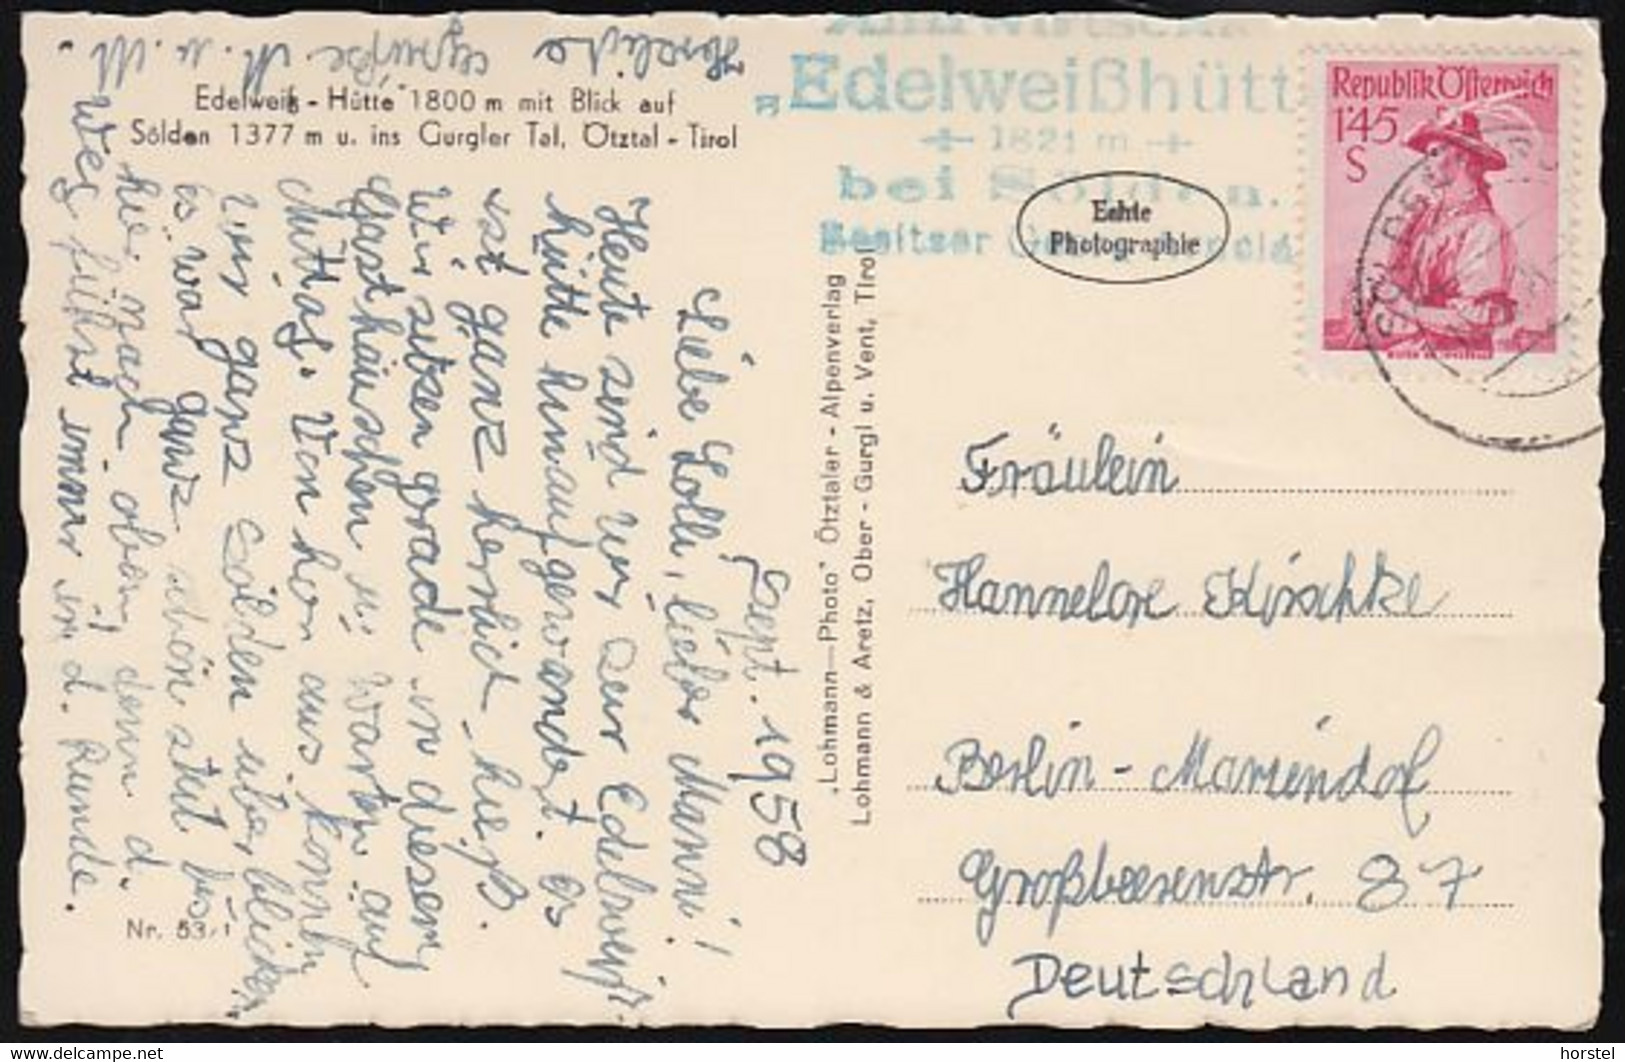 Herzliche Grüße M. u. M.
Edelweiß-Hütte 1800 m mit Blick auf
Sölden 1377 m u. ins Gurgler Tal, Ötztal - Tirol
Sept. 1958
Liebe Lolli, lieber Manni!
Heute sind wir zur Edelweiß-
hütte hinaufgewandert. Es
ist ganz herrlich heiß.
Wir sitzen grade in diesem
Gasthäuschen u. warten auf
Mittag. Von hier aus können
wir ganz Sölden überblicken.
Es war ganz schön steil bis
hier nach oben, denn d.
Weg führt immer in d. Runde.
Nr. 53/1
„Lohmann-Photo" Ötztaler - Alpenverlag
Lohmann & Aretz, Ober - Gurgl u. Vent, Tirol
„Edelweißhütt
1821 m
bei Sölden.
Besitzer
Echte
Photographie
Republik Österreich
1'45
S
Fräulein
Hannelore Kirschke
Berlin - Mariendorf
Großbeerenstr. 87
Deutschland
delcampe.net
horstel